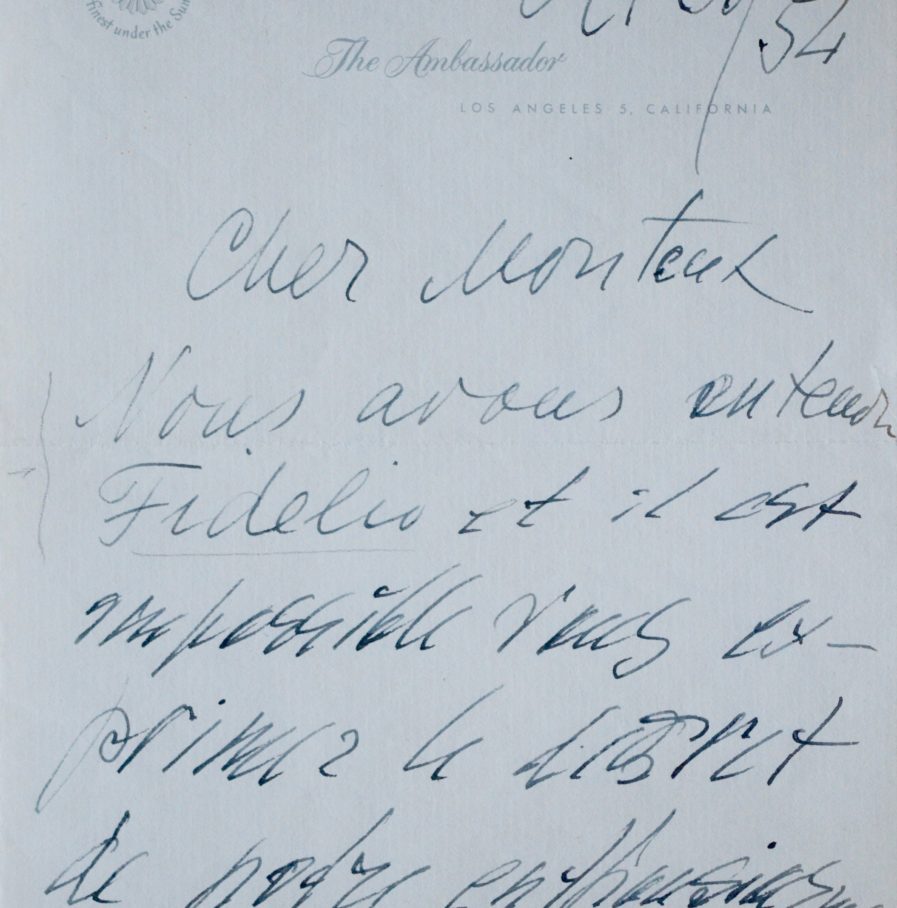 finest under the Sun
/54
The Ambassador
LOS ANGELES 5, CALIFORNIA
Cher Monteux
Nous avons entendu
Fidelio et il est
impossible vous ex-
primer le
de notre enthousiasme